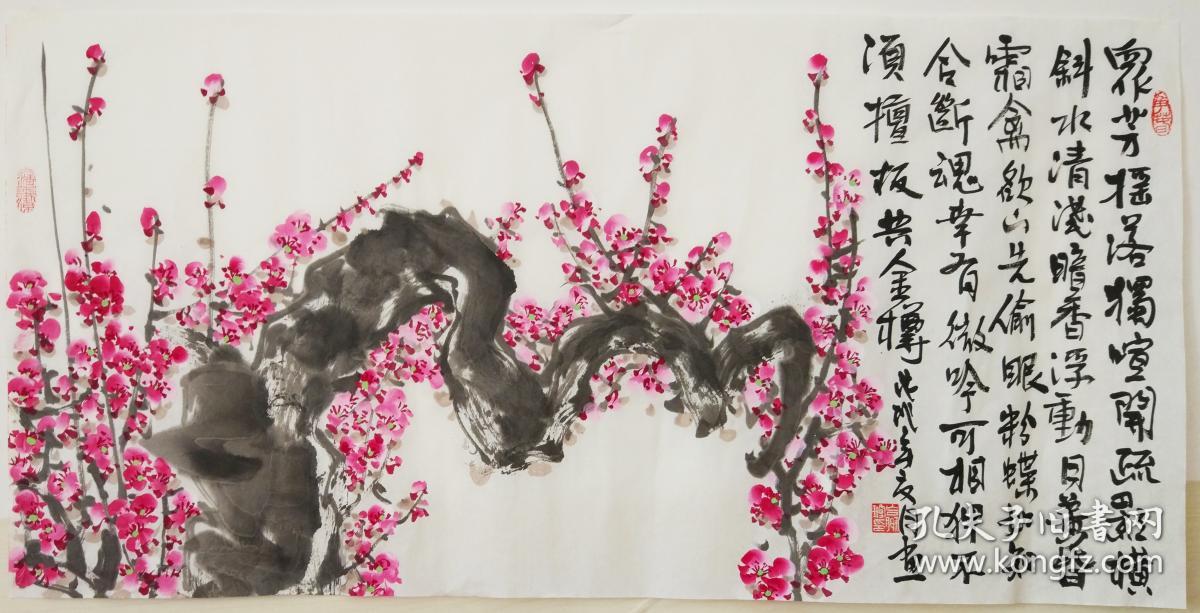 眾芳摇落獨喧開疏影横
斜水清淺暗香浮動月黄昏
霜禽欲下先偷眼粉蝶如知
合斷魂幸有微吟可相狎不
須檀板共金樽 戊戌年
孔夫子旧書网
www.kongfz.com